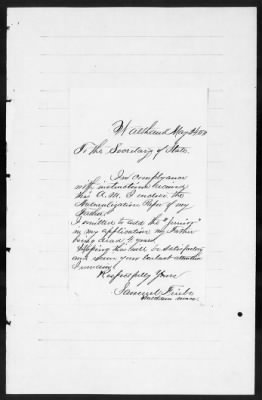 Waltham May 2
To the Secretary of State.
In complyance
with instructions received
this A.M. I enclose the
Naturalization Paper of my
Father.
I omitted to add the "Junior"
in my application my Father
being dead 4 years
Hoping this will be satisfactory
and
I remain
Respectfully Yours
Samuel
Waltham Mass.